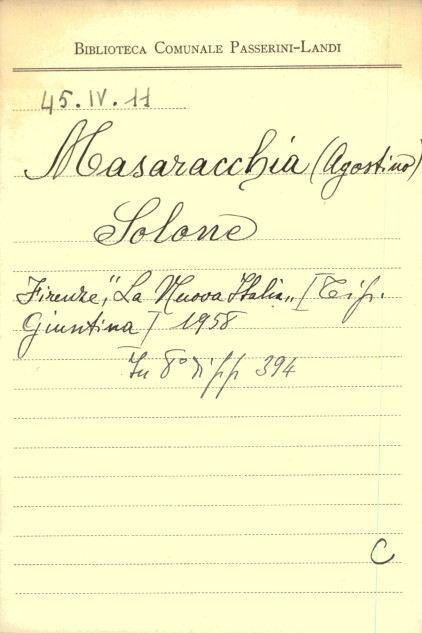 BIBLIOTECA COMUNALE PASSERINI-LANDI
45.IV.11
Masaracchia (Agostino)
Solone
Firenze, "La Nuova Italia„ [Tip.
Giuntina] 1958
In 8° di pp 394
C